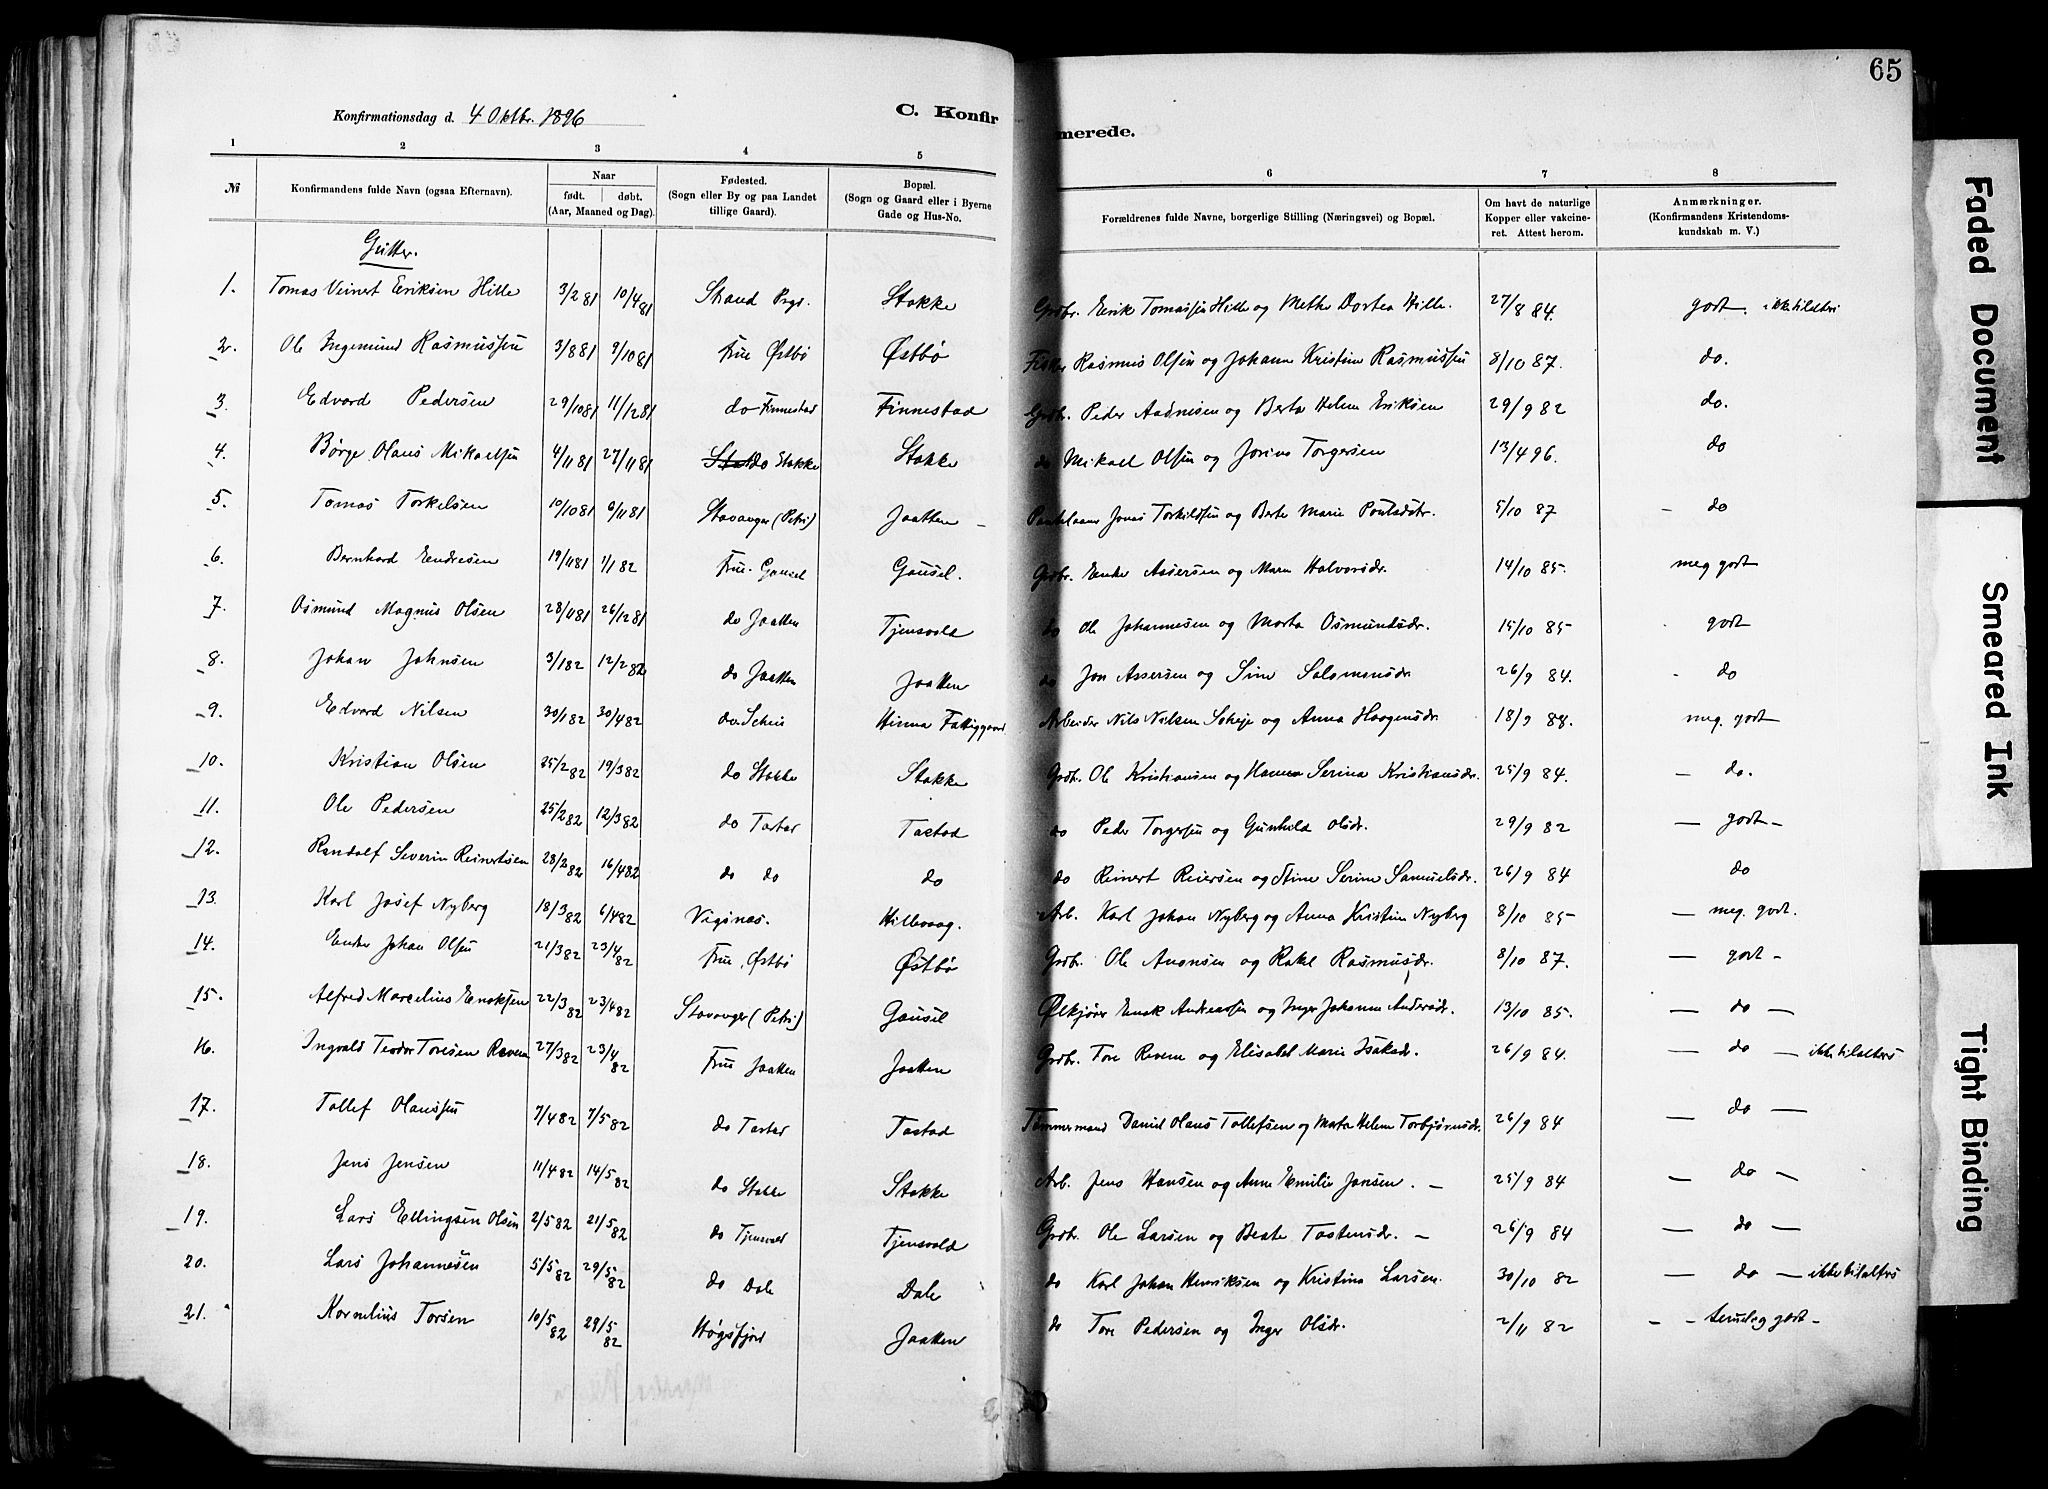 65
Konfirmationsdag d. 4 Oktbr. 1896
C. Konfir
merede.
1 2 3 4 5 6 7 8
№
Konfirmandens fulde Navn (ogsaa Efternavn).
Naar
født. døbt.
(Aar, Maaned og Dag).
Fødested.
(Sogn eller By og paa Landet
tillige Gaard).
Bopæl.
(Sogn og Gaard eller i Byerne
Gade og Hus-No.
Forældrenes fulde Navne, borgerlige Stilling (Næringsvei) og Bopæl.
Om havt de naturlige
Kopper eller vakcine-
ret. Attest herom.
Anmærkninger.
(Konfirmandens Kristendoms-
kundskab m. V.)
Gutter.
1. Tomas Veinert Eriksen Hille 3/2 81 10/4 81 Strand Prgs. Stokke Grdbr. Erik Tomassen Hille og Methe Dortea Hille. 27/8 84. godt. ikke tilalters
2. Ole Ingemund Rasmussen 3/8 81 9/10 81 Frue Østbø Østbø Fisker Rasmus Olsen og Johanne Kristine Rasmussen 8/10 87. do.
3. Edvard Pedersen 29/10 81 11/12 81 do Finnestad Finnestad Grdbr. Peder Aadnesen og Berta Helene Eriksen 29/9 82 do.
4. Børge Olaus Mikaelsen 4/11 81 27/11 81 do Stokke Stokke do Mikael Olsen og Jorina Torgersen 13/4 96. do
5. Tomas Torkelsen 10/10 81 6/11 81 Stavanger (Petri) Jaatten – Jonas Torkildsen og Berte Marie Poulsdtr. 5/10 87 – do
6. Bernhard Endresen 19/11 81 1/1 82 Frue Gausel Gausel. Grdbr. Endre Assersen og Maren Halvorsdr. 14/10 85. meg godt
7. Osmund Magnus Olsen 28/11 81 26/12 81 do Jaatten Tjensvold do Ole Johannesen og Marta Osmundsdr. 15/10 85 godt
8. Johan Johnsen 3/1 82 12/2 82 do Jaatten Jaatten do Jon Assersen og Sine Salomonsdr. 26/9 84. do
9. Edvard Nilsen 30/1 82 30/4 82 do Scheie Hinna Fattiggaard Arbeider Nils Nilsen Scheje og Anna Haagensdr. 18/9 88. meg. godt
10. Kristian Olsen 25/2 82 19/3 82 do Stokke Stokke Grdbr. Ole Kristiansen og Hanna Serina Kristiansdr. 25/9 84. – do.
11. Ole Pedersen 25/2 82 12/3 82 do Tastad Tastad do Peder Torgersen og Gunhild Olsdr. 29/9 82 – godt –
12. Randolf Severin Reinertsen 28/2 82 16/4 82 do do do do Reinert Reiersen og Stine Serine Samuelsdr. 26/9 84 do
13. Karl Josef Nyberg 18/3 82 6/4 82 Vigsnæs. Hillevaag. Arb. Karl Johan Nyberg og Anna Kristine Nyberg 8/10 85 – meg. godt.
14. Endre Johan Olsen 21/3 82 23/4 82 Frue, Østbø Østbø Grdbr. Ole Anansen og Rakel Rasmusdr. 8/10 87. – godt –
15. Alfred Marcelius Enoksen 22/3 82 23/4 82 Stavanger (Petri) Gausel Ølkjører Enok Andreassen og Inger Johanne Andersdr. 13/10 85. – do –
16. Ingvald Teodor Toresen Reveim 27/3 82 23/4 82 Frue Jaatten Jaatten Grdbr. Tore Reveim og Elisabet Marie Isaksdr. 26/9 84. – do – ikke tilalters
17. Tollef Olaussen 7/4 82 7/5 82 do Tastad Tastad Tømmermand Daniel Olaus Tollefsen og Marta Helene Torbjørnsdr. 26/9 84 – do –
18. Jens Jensen 11/4 82 14/5 82 do Stokke Stokke Arb. Jens Hansen og Anne Emilie Jansen. – 25/9 84 – do –
19. Lars Ellingsen Olsen 2/5 82 21/5 82 do Tjensvold Tjensvold Grdbr. Ole Larsen og Beate Tostensdr. – 26/9 84 – do –
20. Lars Johannesen 5/5 82 29/5 82 do Dale Dale do Karl Johan Henriksen og Kristina Larsen. 30/10 82 – do – ikke tilalters
21. Kornelius Torsen 10/5 82 29/5 82 Høgsfjord Jaatten do Tore Pedersen og Inger Olsdr. 2/11 82 – – temelig godt –
Faded Document
Smeared Ink
Tight Binding